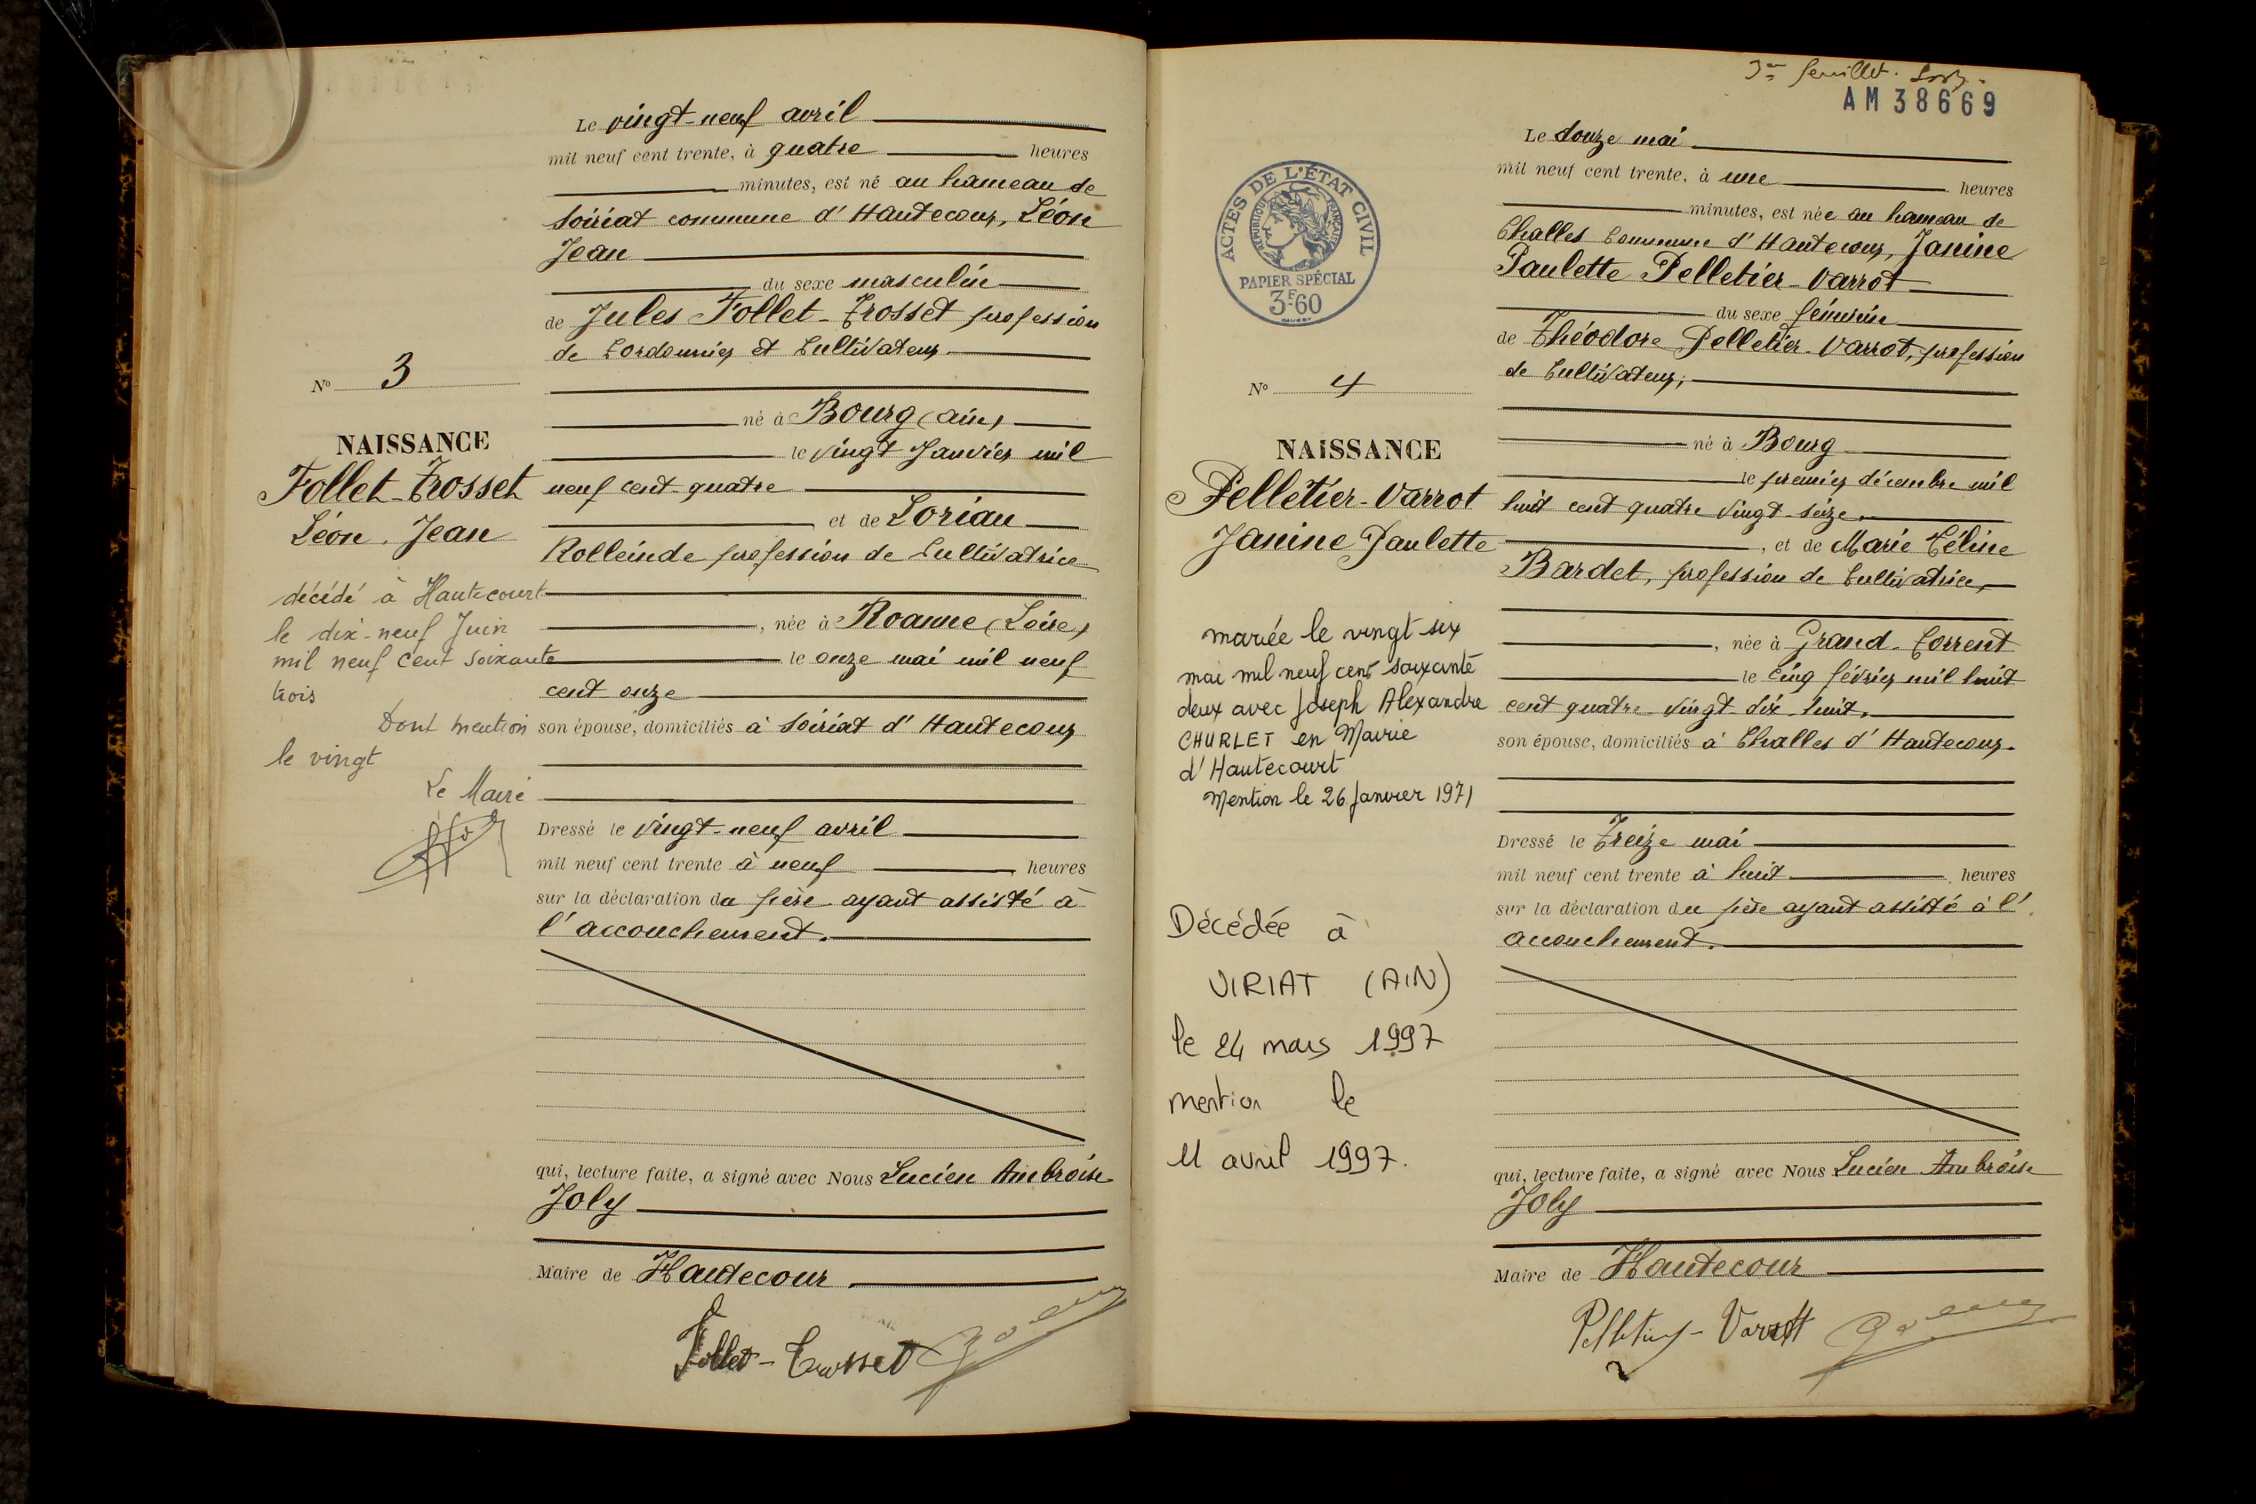 Le vingt-neuf avril
mil neuf cent trente, à quatre heures
minutes, est né au hameau de
Soiriat commune d'Hautecour, Léon
Jean
du sexe masculin
de Jules Follet-Trosset profession
de Cordonnier et Cultivateur
né à Bourg (Ain)
le vingt Janvier mil
neuf cent quatre
et de Lorian
Rolleinde profession de Cultivatrice
, née à Roanne (Loire)
le onze mai mil neuf
cent onze
son épouse, domiciliés à Soiriat d'Hautecour
Dressé le vingt-neuf avril
mil neuf cent trente à neuf heures
sur la déclaration du père ayant assisté à
l'accouchement.
qui, lecture faite, a signé avec Nous Lucien Ambroise
Joly
Maire de Hautecour
Follet-Trosset
No 3
NAISSANCE
Follet-Trosset
Léon, Jean
décédé à Hautecourt
le dix-neuf Juin
mil neuf cent soixante
trois
Dont mention
le vingt
Le Maire
3me feuillet.
AM 38669
Le douze mai
mil neuf cent trente, à une heures
minutes, est née au hameau de
Challes Commune d'Hautecour, Janine
Paulette Pelletier-Varrot
du sexe féminin
de Théodore Pelletier-Varrot, profession
de Cultivateur,
né à Bourg
le premier décembre mil
huit cent quatre vingt-seize,
, et de Marie Céline
Bardet, profession de Cultivatrice,
, née à Grand-Corrent
le cinq février mil huit
cent quatre-vingt-dix-huit,
son épouse, domiciliés à Challes d'Hautecour.
Dressé le treize mai
mil neuf cent trente à huit heures
sur la déclaration du père ayant assisté à l'
accouchement.
qui, lecture faite, a signé avec Nous Lucien Ambroise
Joly
Maire de Hautecour
Pelletier-Varrot
ACTES DE L'ÉTAT CIVIL
RÉPUBLIQUE FRANÇAISE
PAPIER SPÉCIAL
3F60
No 4
NAISSANCE
Pelletier-Varrot
Janine Paulette
mariée le vingt six
mai mil neuf cent soixante
deux avec Joseph Alexandre
CHURLET en Mairie
d'Hautecourt
Mention le 26 Janvier 1971
Décédée à
VIRIAT (AIN)
le 24 mars 1997
mention le
11 avril 1997.